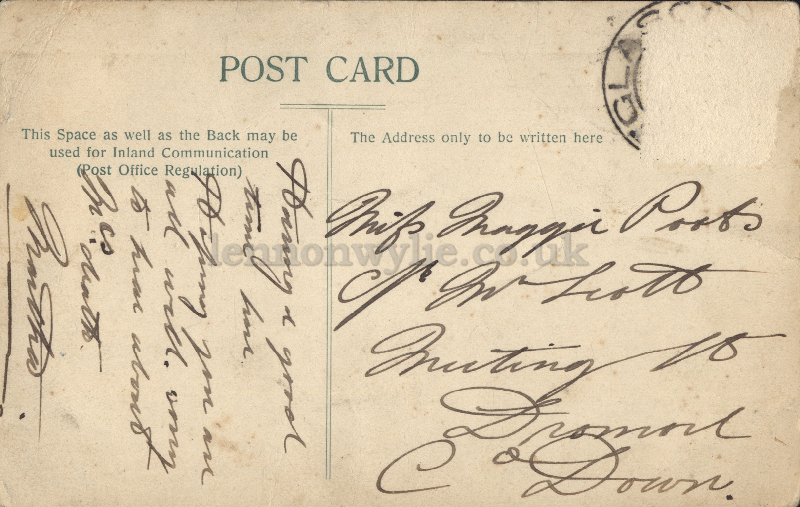 POST CARD
This Space as well as the Back may be
used for Inland Communication
(Post Office Regulation)
The Address only to be written here
GLASGO
Having a good
time here
Hoping you are
all well. sorry
to hear about
Mcs death
Martha
Miss Maggie Poots
c/o Mr Scott
Meeting St
Dromore
Co Down.
lennonwylie.co.uk